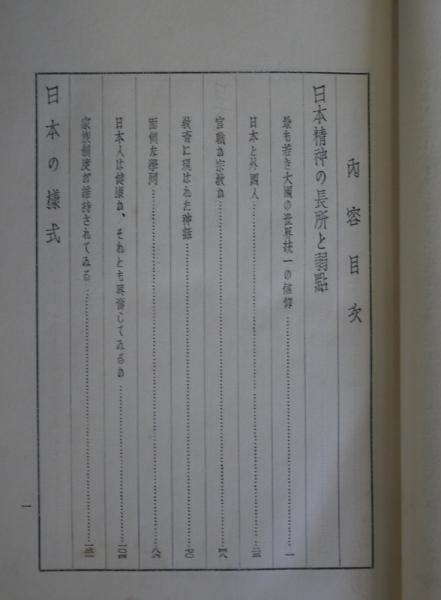 內容目次
日本精神の長所と弱點
最も若き大國の世界統一の信仰……一
日本と外國人……二五
官職か宗敎か……四八
敎育に現はれた神話……七〇
面倒な學問……八六
日本人は健康か、それとも興奮してゐるか……一〇四
家族制度が維持されてゐる……
日本の樣式
一